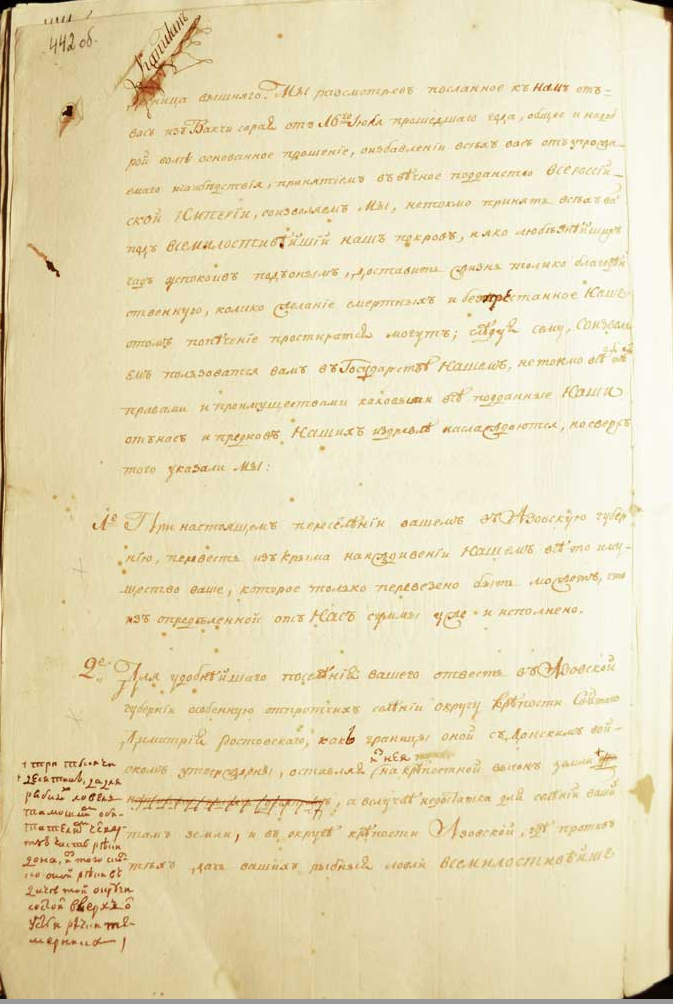 442 об.
десница вышняго. Мы разсмотревъ посланное къ намъ отъ=
васъ изъ Бакчи сарая отъ 16го Июля прошедшаго года, общее и на доб
рой воле основанное прошение, о избавлении всехъ васъ отъ угрожа=
емаго ига и бедствия, принятиемъ въ вечное подданство ВСЕРОССІЙ=
СКОЙ ИМПЕРІИ, соизволяемъ Мы, не токмо принять всехъ ва
подъ всемилостивѣйшій нашъ покровъ, и яко любезнѣйшихъ
чадъ успокоивъ подъ онымъ, доставить жизнь толико благоден
ственную, колико желание смертныхъ и безпрестанное НАШЕ
о томъ попѣчение простиратся могутъ; следуя сему, соизволя
емъ пользоватся вамъ въ Государстве НАШЕМЪ, не токмо всѣ
правами и преимуществами каковыми всѣ подданные НАШИ
отъ насъ и предковъ НАШИХЪ издревлѣ наслаждаются, но сверхъ
того указали МЫ:
1е При настоящемъ переселѣніи вашемъ въ Азовскую губер
нію, перевесть изъ Крыма на иждивеніи НАШЕМЪ все то иму=
щество ваше, которое только перевезено быть можетъ, что
изъ опредѣленной отъ НАСЪ суммы уже и исполнено.
2е Для удобнѣйшаго поселѣнія вашего отвесть въ Азовской
губерніи особенную отъ протчихъ селеній округу крѣпости Святаго
Димитрія Ростовскаго, какъ границы оной съ донскимъ вой=
скомъ утверждены, оставляя изъ нея на крѣпостной выгонъ земли
, а въ случаѣ недостатка для селеній вашихъ
тамъ земли, и въ округѣ крѣпости Азовской, где противъ
тѣхъ дачь вашихъ рыбныя ловли всемилостивѣйше
три тысячи
десятинъ, для
рыбной ловли
тамошнимъ оби
тателямъ
часть реки
Дона,
оной реки въ
округи
вверхъ
устья речки Те
мерника,